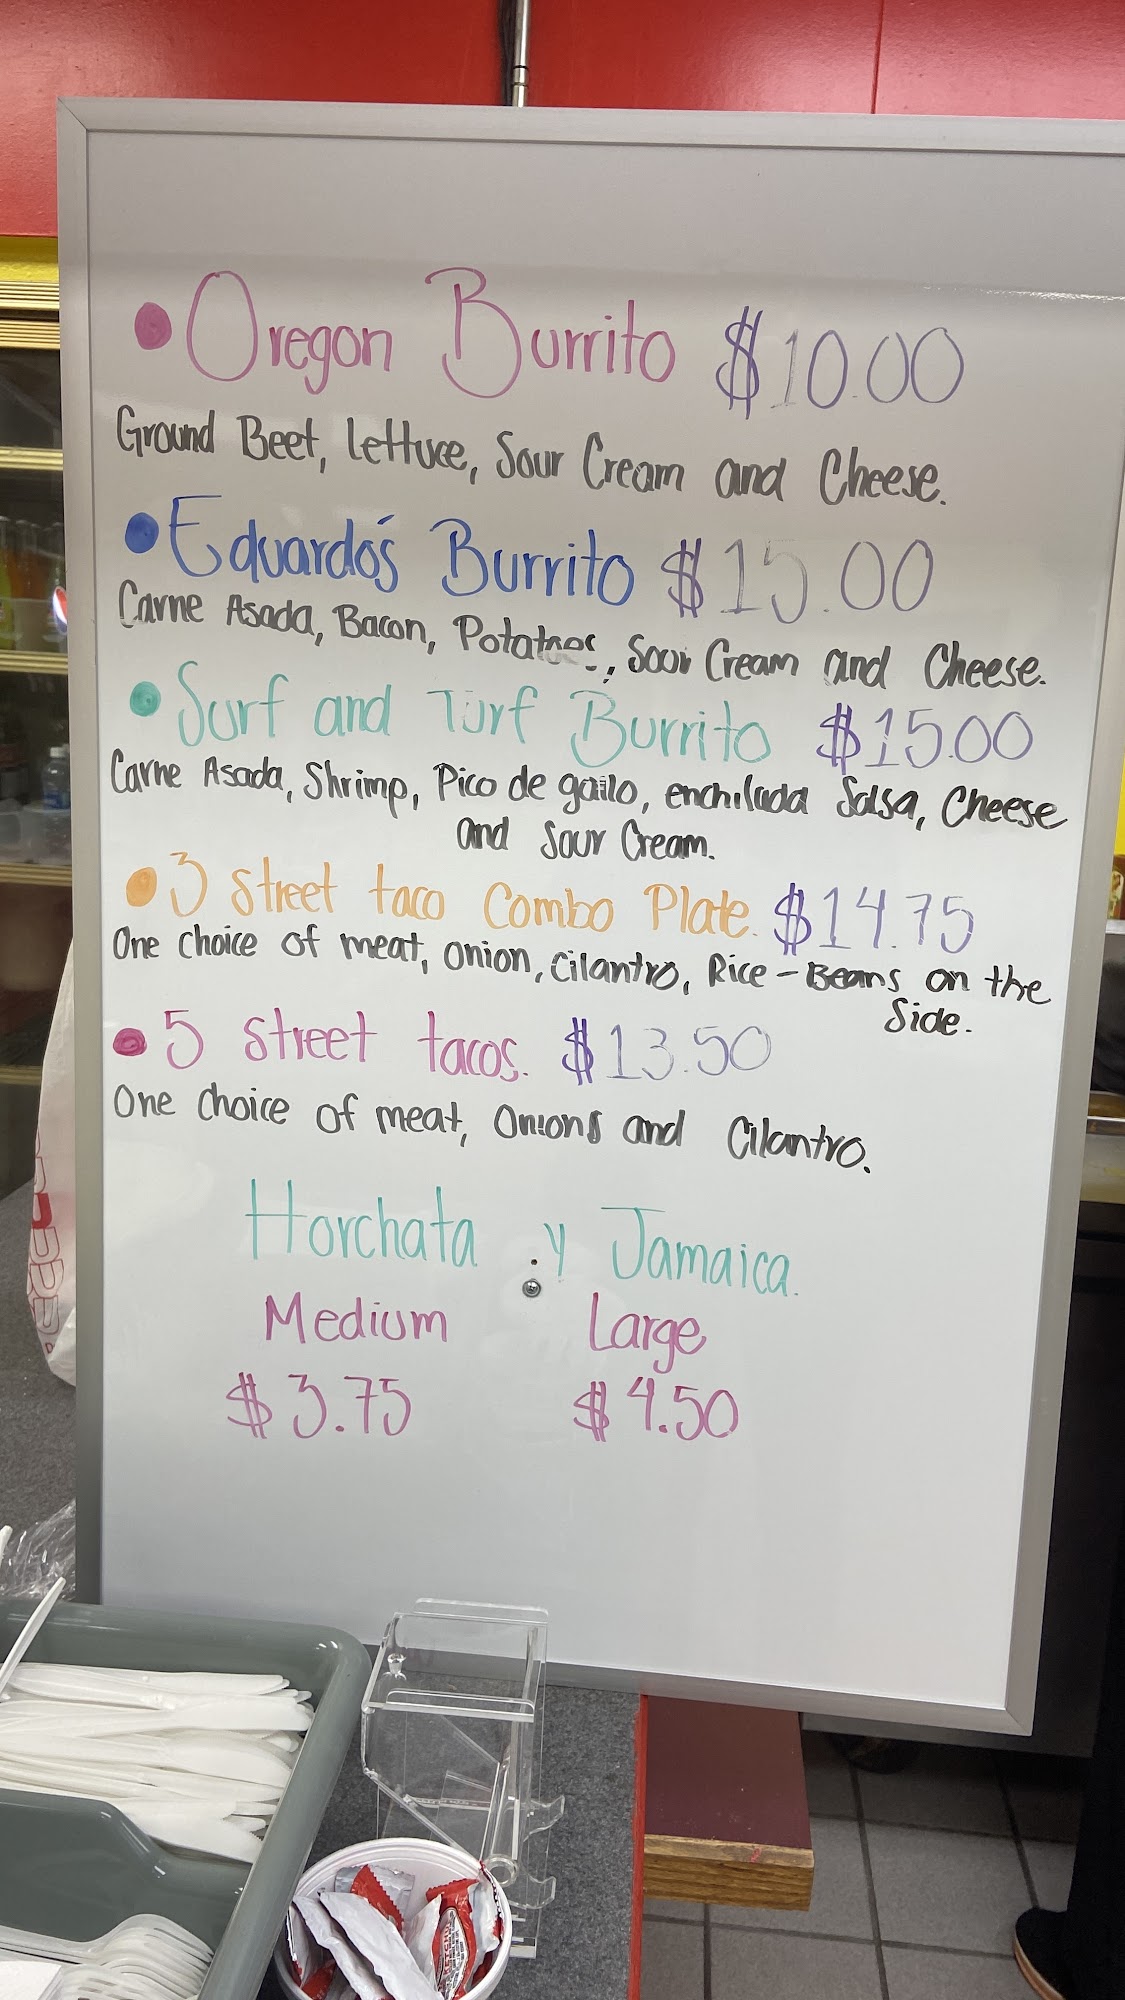 • Oregon Burrito $10.00
Ground Beef, Lettuce, Sour Cream and Cheese.
• Eduardo's Burrito $15.00
Carne Asada, Bacon, Potatoes, Sour Cream and Cheese.
• Surf and Turf Burrito $15.00
Carne Asada, Shrimp, Pico de gallo, enchilada Salsa, Cheese
and Sour Cream.
• 3 Street taco Combo Plate. $14.75
One choice of meat, onion, cilantro, Rice - Beans on the
Side.
• 5 street tacos. $13.50
One choice of meat, Onions and Cilantro.
Horchata y Jamaica.
Medium Large
$3.75 $4.50